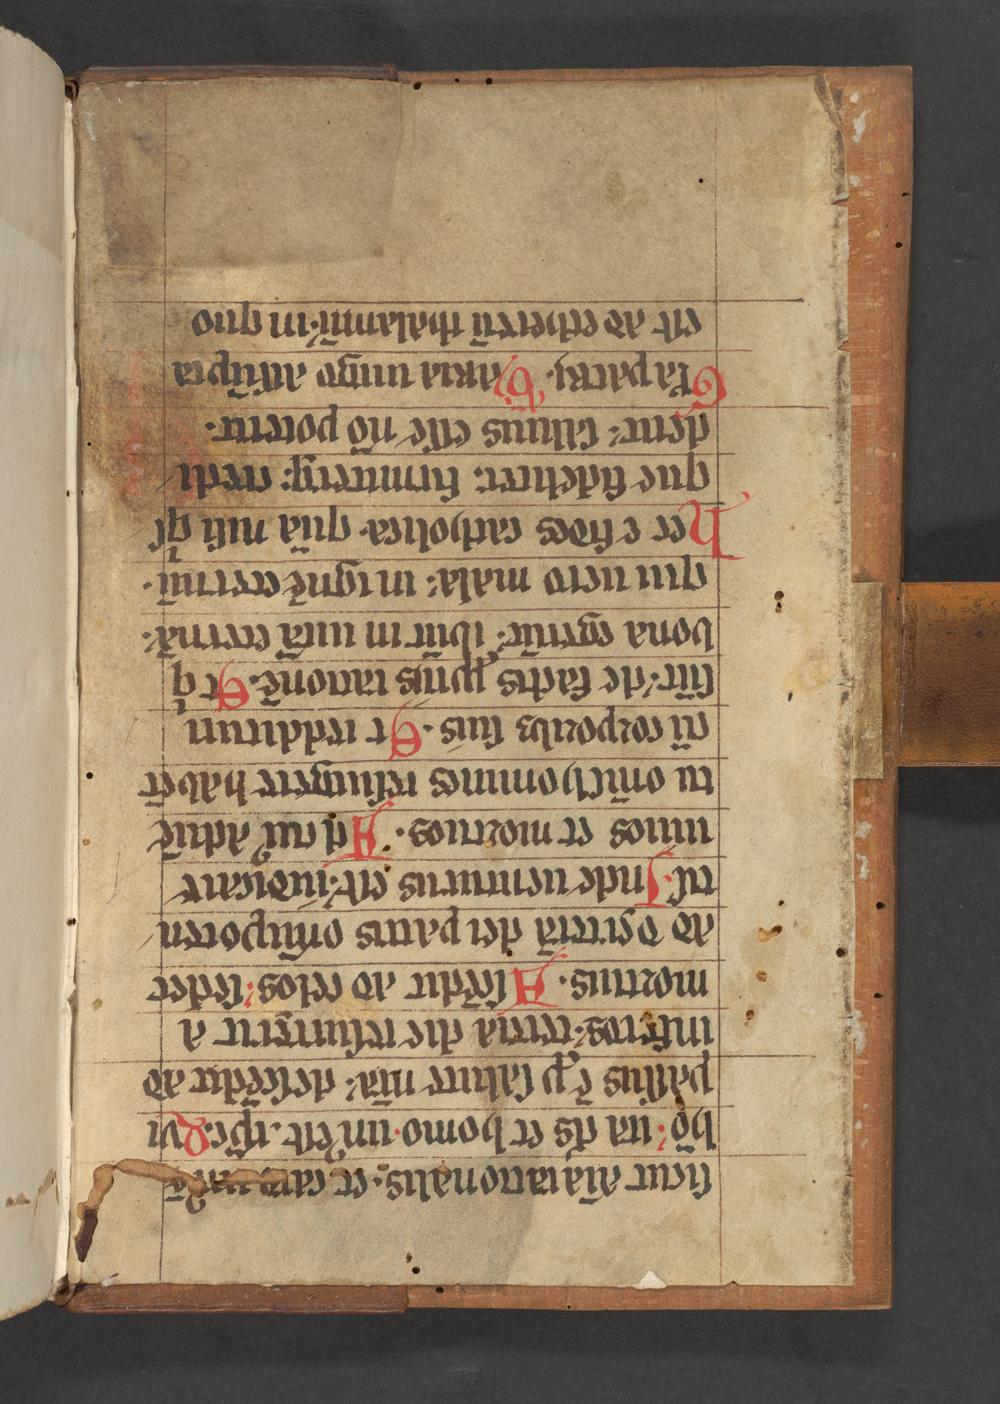 sicut aīa rationalis· et caro
hō: ita ds̄ et homo un᷒ est· xp̄c· Qui
passus ē ꝓ salute nr̄a: descēdit ad
inferos· tercia die resurrexit a
mortuis· Ascēdit ad celos: sedet
ad dexterā dei patris omīpoten
tis· Inde uenturus est· iudicare
uiuos et mortuos· Ad cui᷒ aduē
tū om̄s homines resurgere habēt
cū corporibꝫ suis· Et reddituri
sūt· de factis ꝓpriis rationē· Et q
bona egerūt· ibūt in uitā eternā·
qui uero mala: in ignē eternū·
Hec ē fides catholica· quā nisi qͥs
que fideliter: firmiterqꝫ credi
derit: saluus esse nō poterit·
Gl̄a patri· Maria uirgo assūpta
est ad ethereū thalamū· in quo